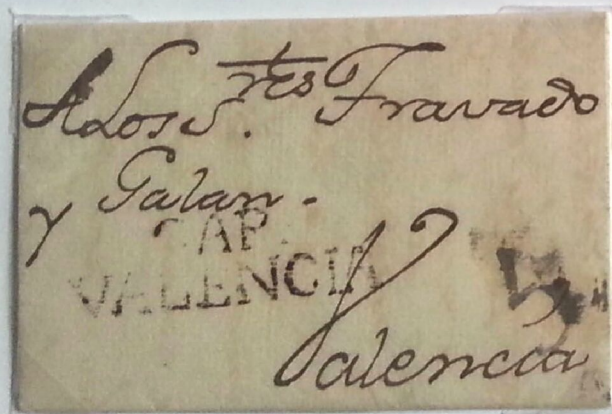 A Los S.res Travado
y Galan.
CAP.
VALENCIA
Valencia
5